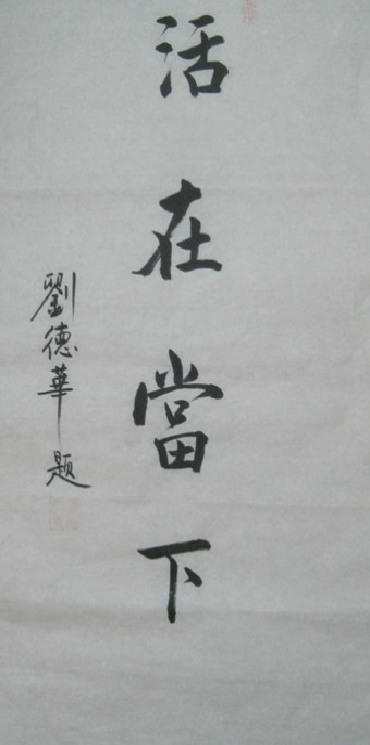 活在當下
劉德華題